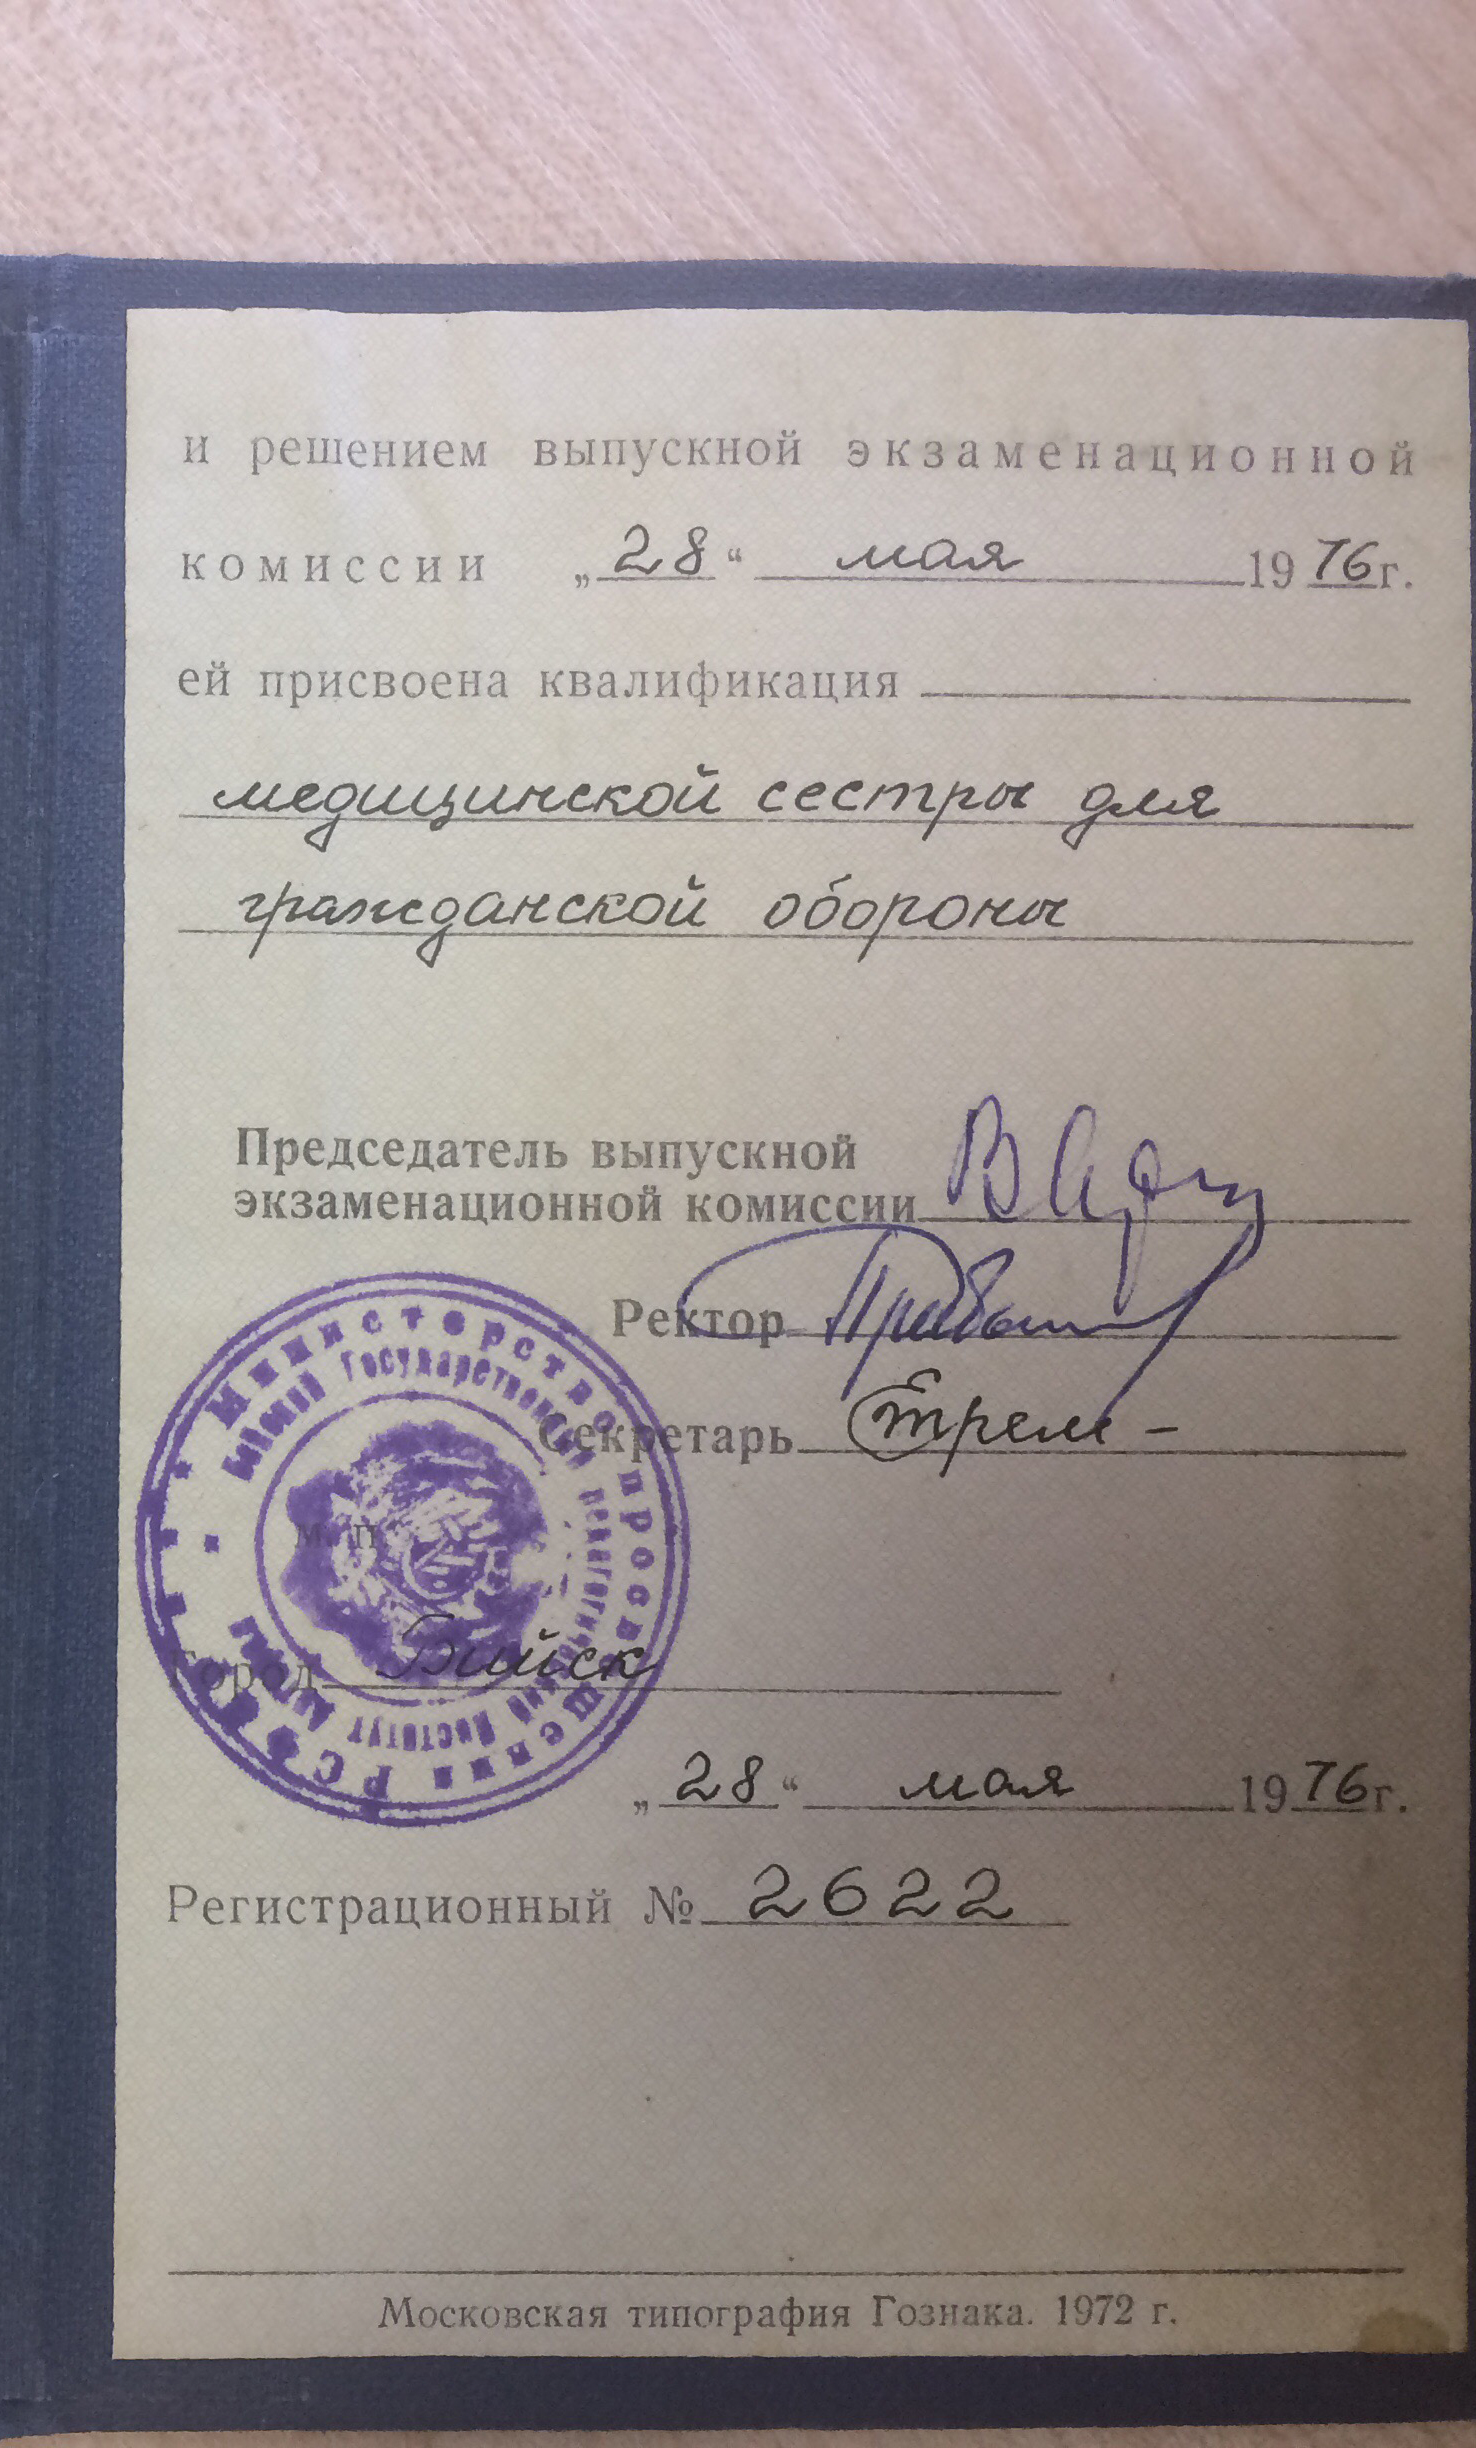 и решением выпускной экзаменационной
комиссии „28“ мая 1976 г.
ей присвоена квалификация
медицинской сестры для
гражданской обороны
Председатель выпускной
экзаменационной комиссии
Ректор
Секретарь
Министерство просвещения РСФСР
Бийский Государственный педагогический институт
м. п.
Город Бийск
„28“ мая 1976 г.
Регистрационный № 2622
Московская типография Гознака. 1972 г.